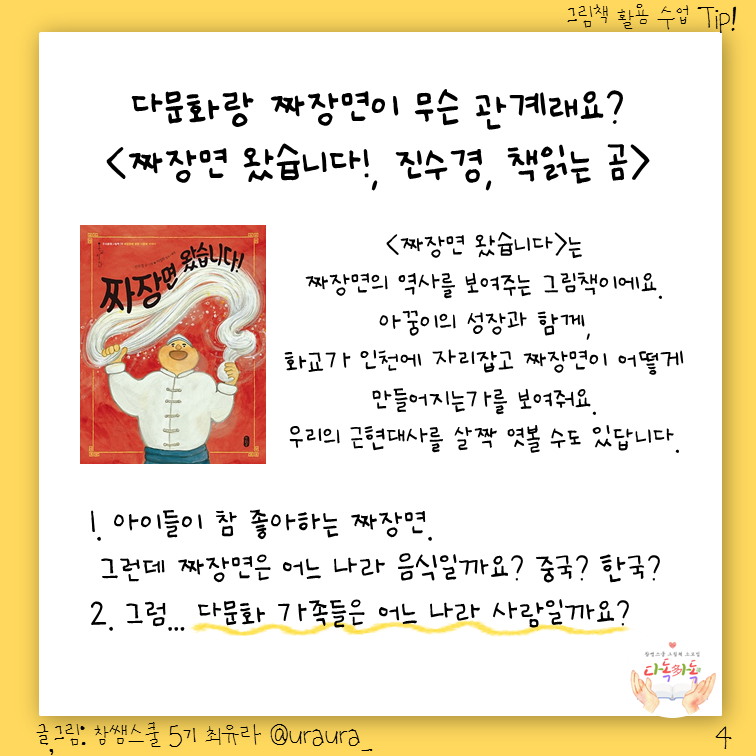 그림책 활용 수업 Tip!
다문화랑 짜장면이 무슨 관계래요?
<짜장면 왔습니다!, 진수경, 책읽는 곰>
짜장면 왔습니다!
<짜장면 왔습니다>는
짜장면의 역사를 보여주는 그림책이에요.
아꿍이의 성장과 함께,
화교가 인천에 자리잡고 짜장면이 어떻게
만들어지는가를 보여줘요.
우리의 근현대사를 살짝 엿볼 수도 있답니다.
1. 아이들이 참 좋아하는 짜장면.
그런데 짜장면은 어느 나라 음식일까요? 중국? 한국?
2. 그럼... 다문화 가족들은 어느 나라 사람일까요?
참쌤스쿨 그림책 소모임
다독多독
글,그림: 참쌤스쿨 5기 최유라 @uraura_
4